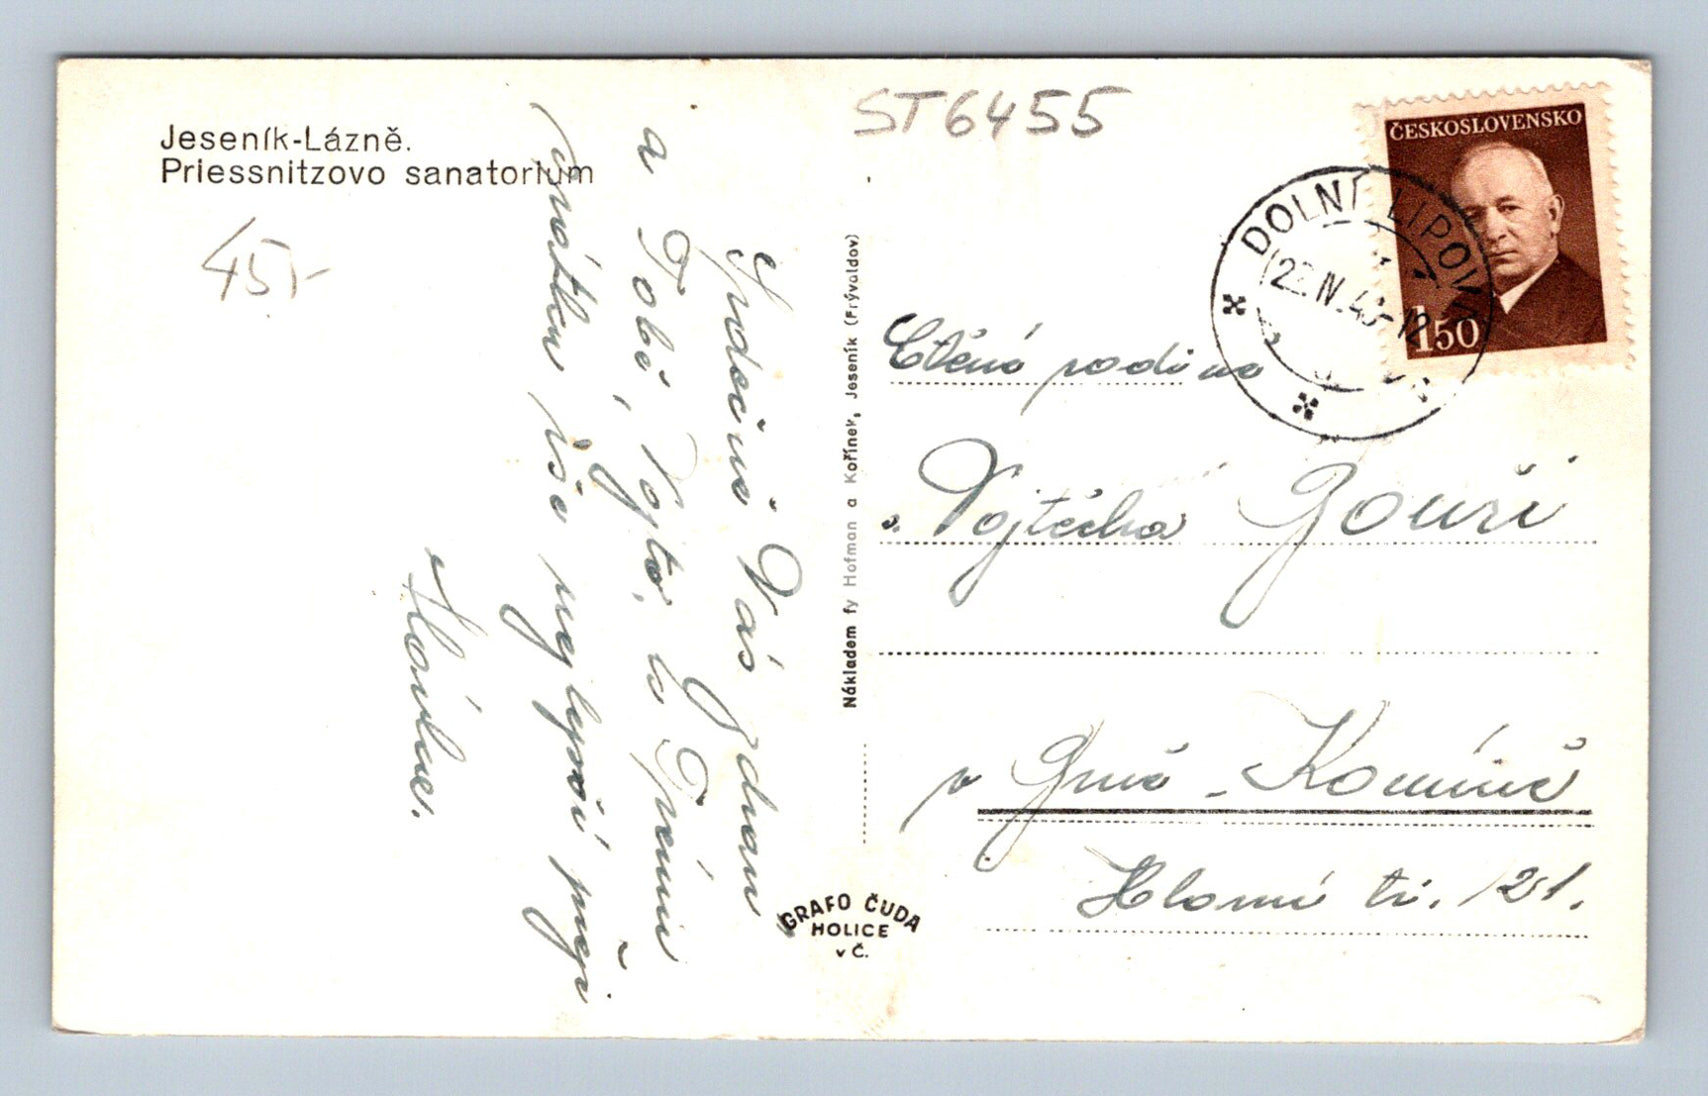 Jeseník-Lázně.
Priessnitzovo sanatorium
45,-
ST6455
ČESKOSLOVENSKO
1.50
DOLNÍ LIPOVÁ
22.IV.4 -12
Srdečně Vás zdraví
a Tobě, Vojto, k
svátku vše nejlepší přeji
Slávka.
Nákladem fy Hofman a Kořínek, Jeseník (Frývaldov)
GRAFO ČUDA
HOLICE
v Č.
Ctěná rodina
Vojtěcha
v Brně - Komíně
Hlavní tř. 121.